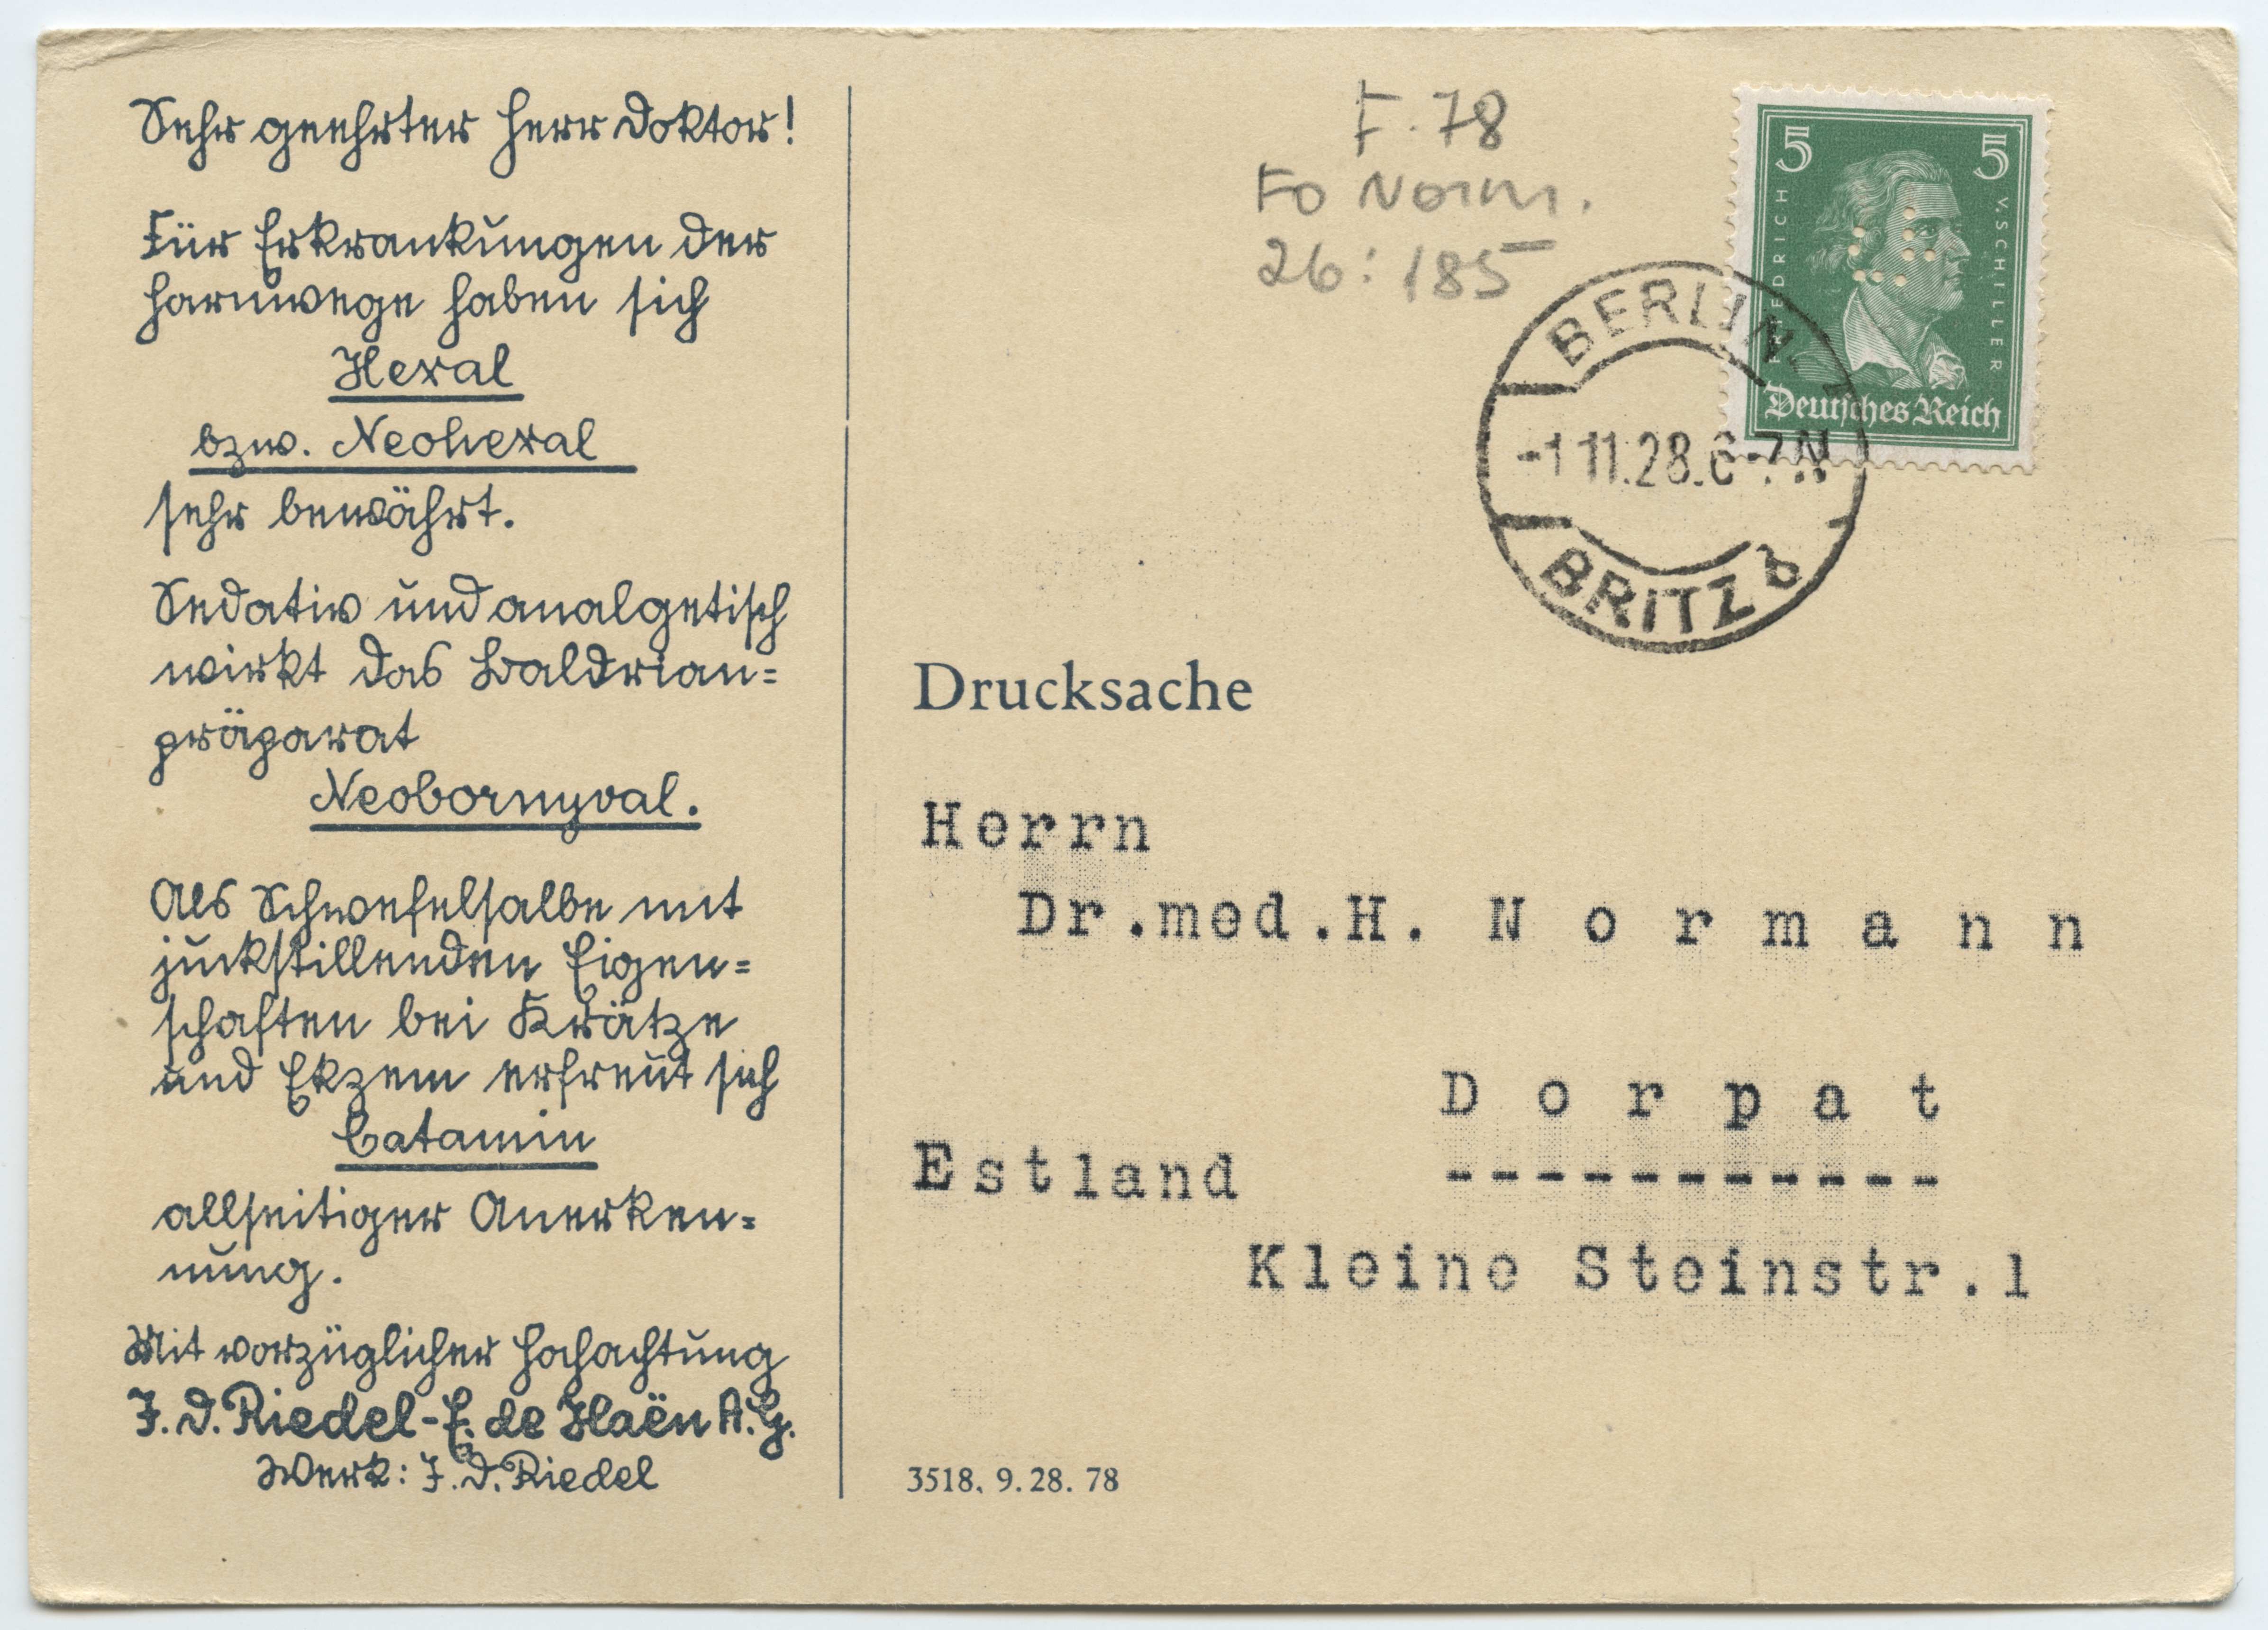 Sehr geehrter Herr Doktor!
Für Erkrankungen der
Harnwege haben sich
Hexal
bzw. Neohexal
sehr bewährt.
Sedativ und analgetisch
wirkt das Baldrian=
präparat
Neobornyval.
Als Schwefelsalbe mit
juckstillenden Eigen=
schaften bei Krätze
und Ekzem erfreut sich
Catamin
allseitiger Anerken=
nung.
Mit vorzüglicher Hochachtung
J. D. Riedel-E. de Haën A.G.
Werk: J. D. Riedel
F. 78
Fo Norm.
26: 185
5 5
FRIEDRICH
V. SCHILLER
Deutsches Reich
BERLIN-
-1 11.28. 6-7 N
BRITZ b
Drucksache
Herrn
Dr.med.H. N o r m a n n
D o r p a t
Estland -----------
Kleine Steinstr.1
3518. 9. 28. 78